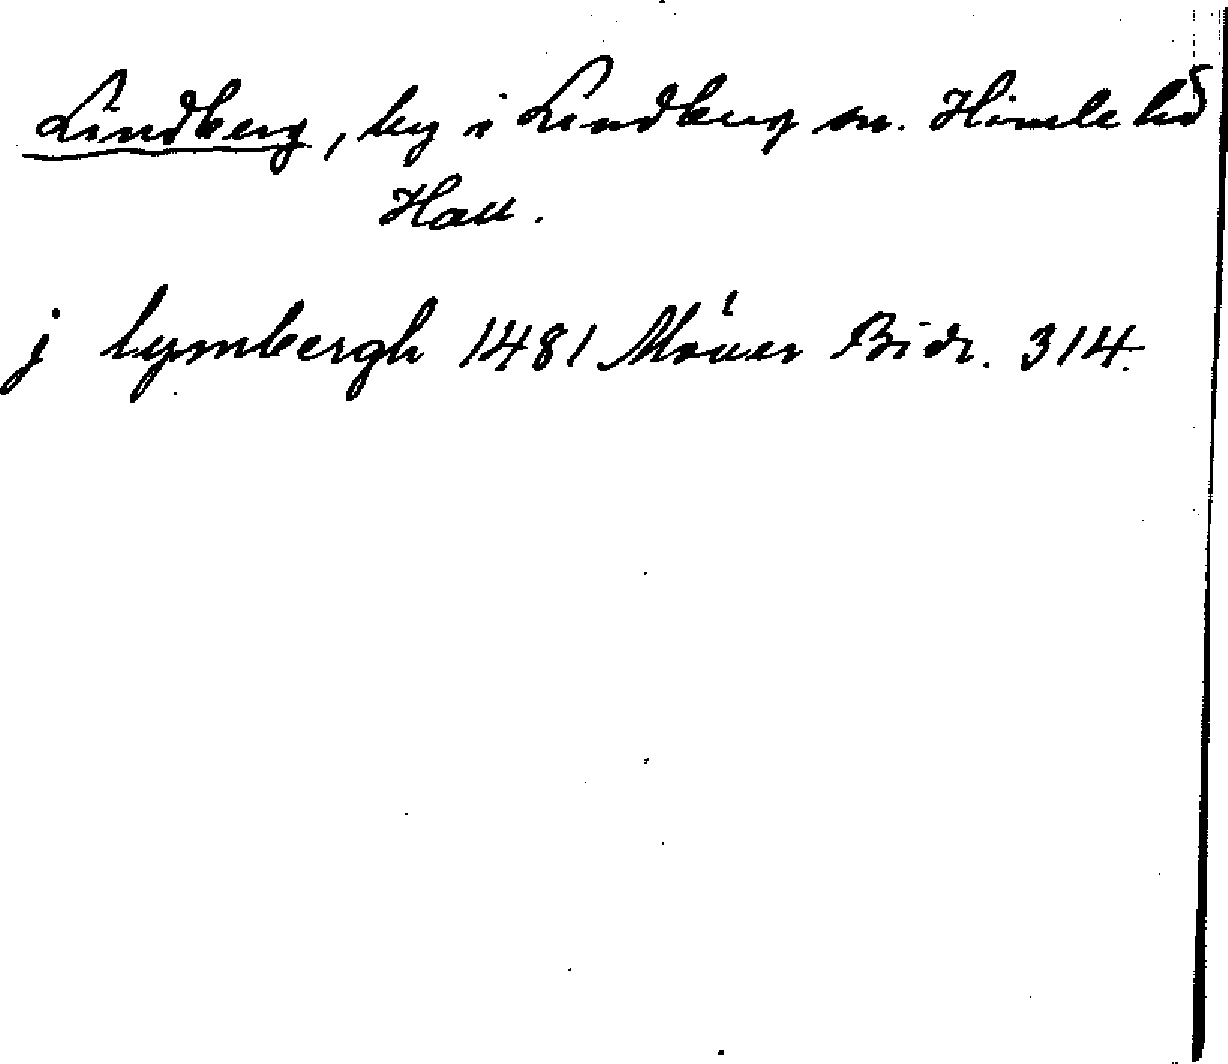 Lindberg, by i Lindberg sn. Himle hd
Hall.
j lymbergh 1481 Bidr. 314.